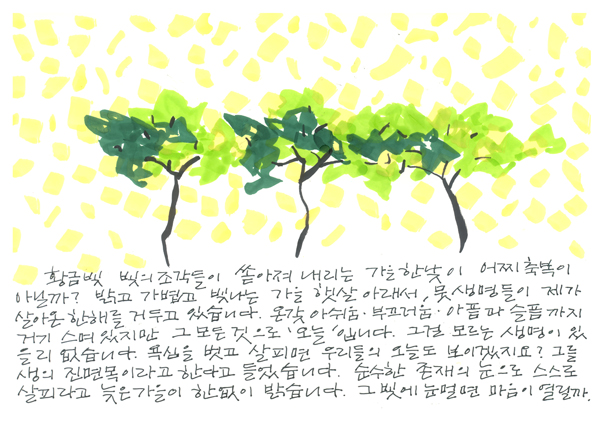 황금빛 빛의 조각들이 쏟아져 내리는 가을 한낮이 어찌 축복이
아닐까? 밝고 가볍고 빛나는 가을 햇살 아래서, 뭇 생명들이 제가
살아온 한해를 거두고 있습니다. 온갖 아쉬움·부끄러움·아픔과 슬픔까지
거기 스며 있지만 그 모든 것으로 '오늘'입니다. 그걸 모르는 생명이 있
을리 없습니다. 욕심을 벗고 살피면 우리들의 오늘도 보이겠지요? 그를
생의 진면목이라고 한다고 들었습니다. 순수한 존재의 눈으로 스스로
살피라고 늦은 가을이 한없이 밝습니다. 그 빛에 눈멀면 마음이 열릴까.